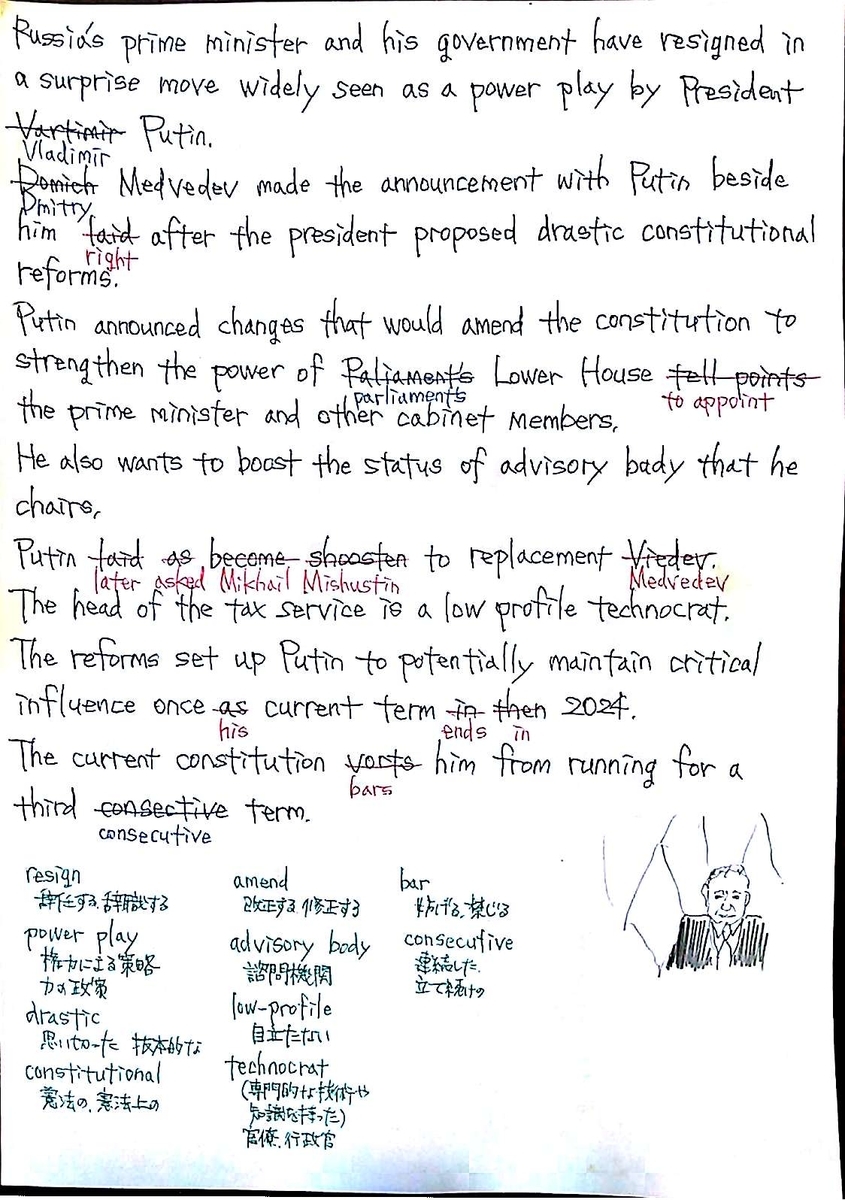 Russia's prime minister and his government have resigned in
a surprise move widely seen as a power play by President
Vartimir Putin.
Vladimir
Domich Medvedev made the announcement with Putin beside
Dmitry
him taid after the president proposed drastic constitutional
right
reforms.
Putin announced changes that would amend the constitution to
strengthen the power of Paliament's Lower House tell points
parliament's to appoint
the prime minister and other cabinet members,
He also wants to boost the status of advisory bady that he
chairs,
Putin taid as become shoosten to replacement Viedev.
later asked Mikhail Mishustin Medvedev
The head of the tax service is a low profile technocrat.
The reforms set up Putin to potentially maintain critical
influence once as current term in then 2024.
his ends in
The current constitution vorts him from running for a
bars
third consective term.
consecutive
resign
辞任する、辞職する
power play
権力による策略
力の政策
drastic
思い切った 抜本的な
constitutional
憲法の、憲法上の
amend
改正する、修正する
advisory body
諮問機関
low-profile
目立たない
technocrat
(専門的な技術や
知識を持った)
官僚、行政官
bar
妨げる、禁じる
consecutive
連続した、
立て続けの